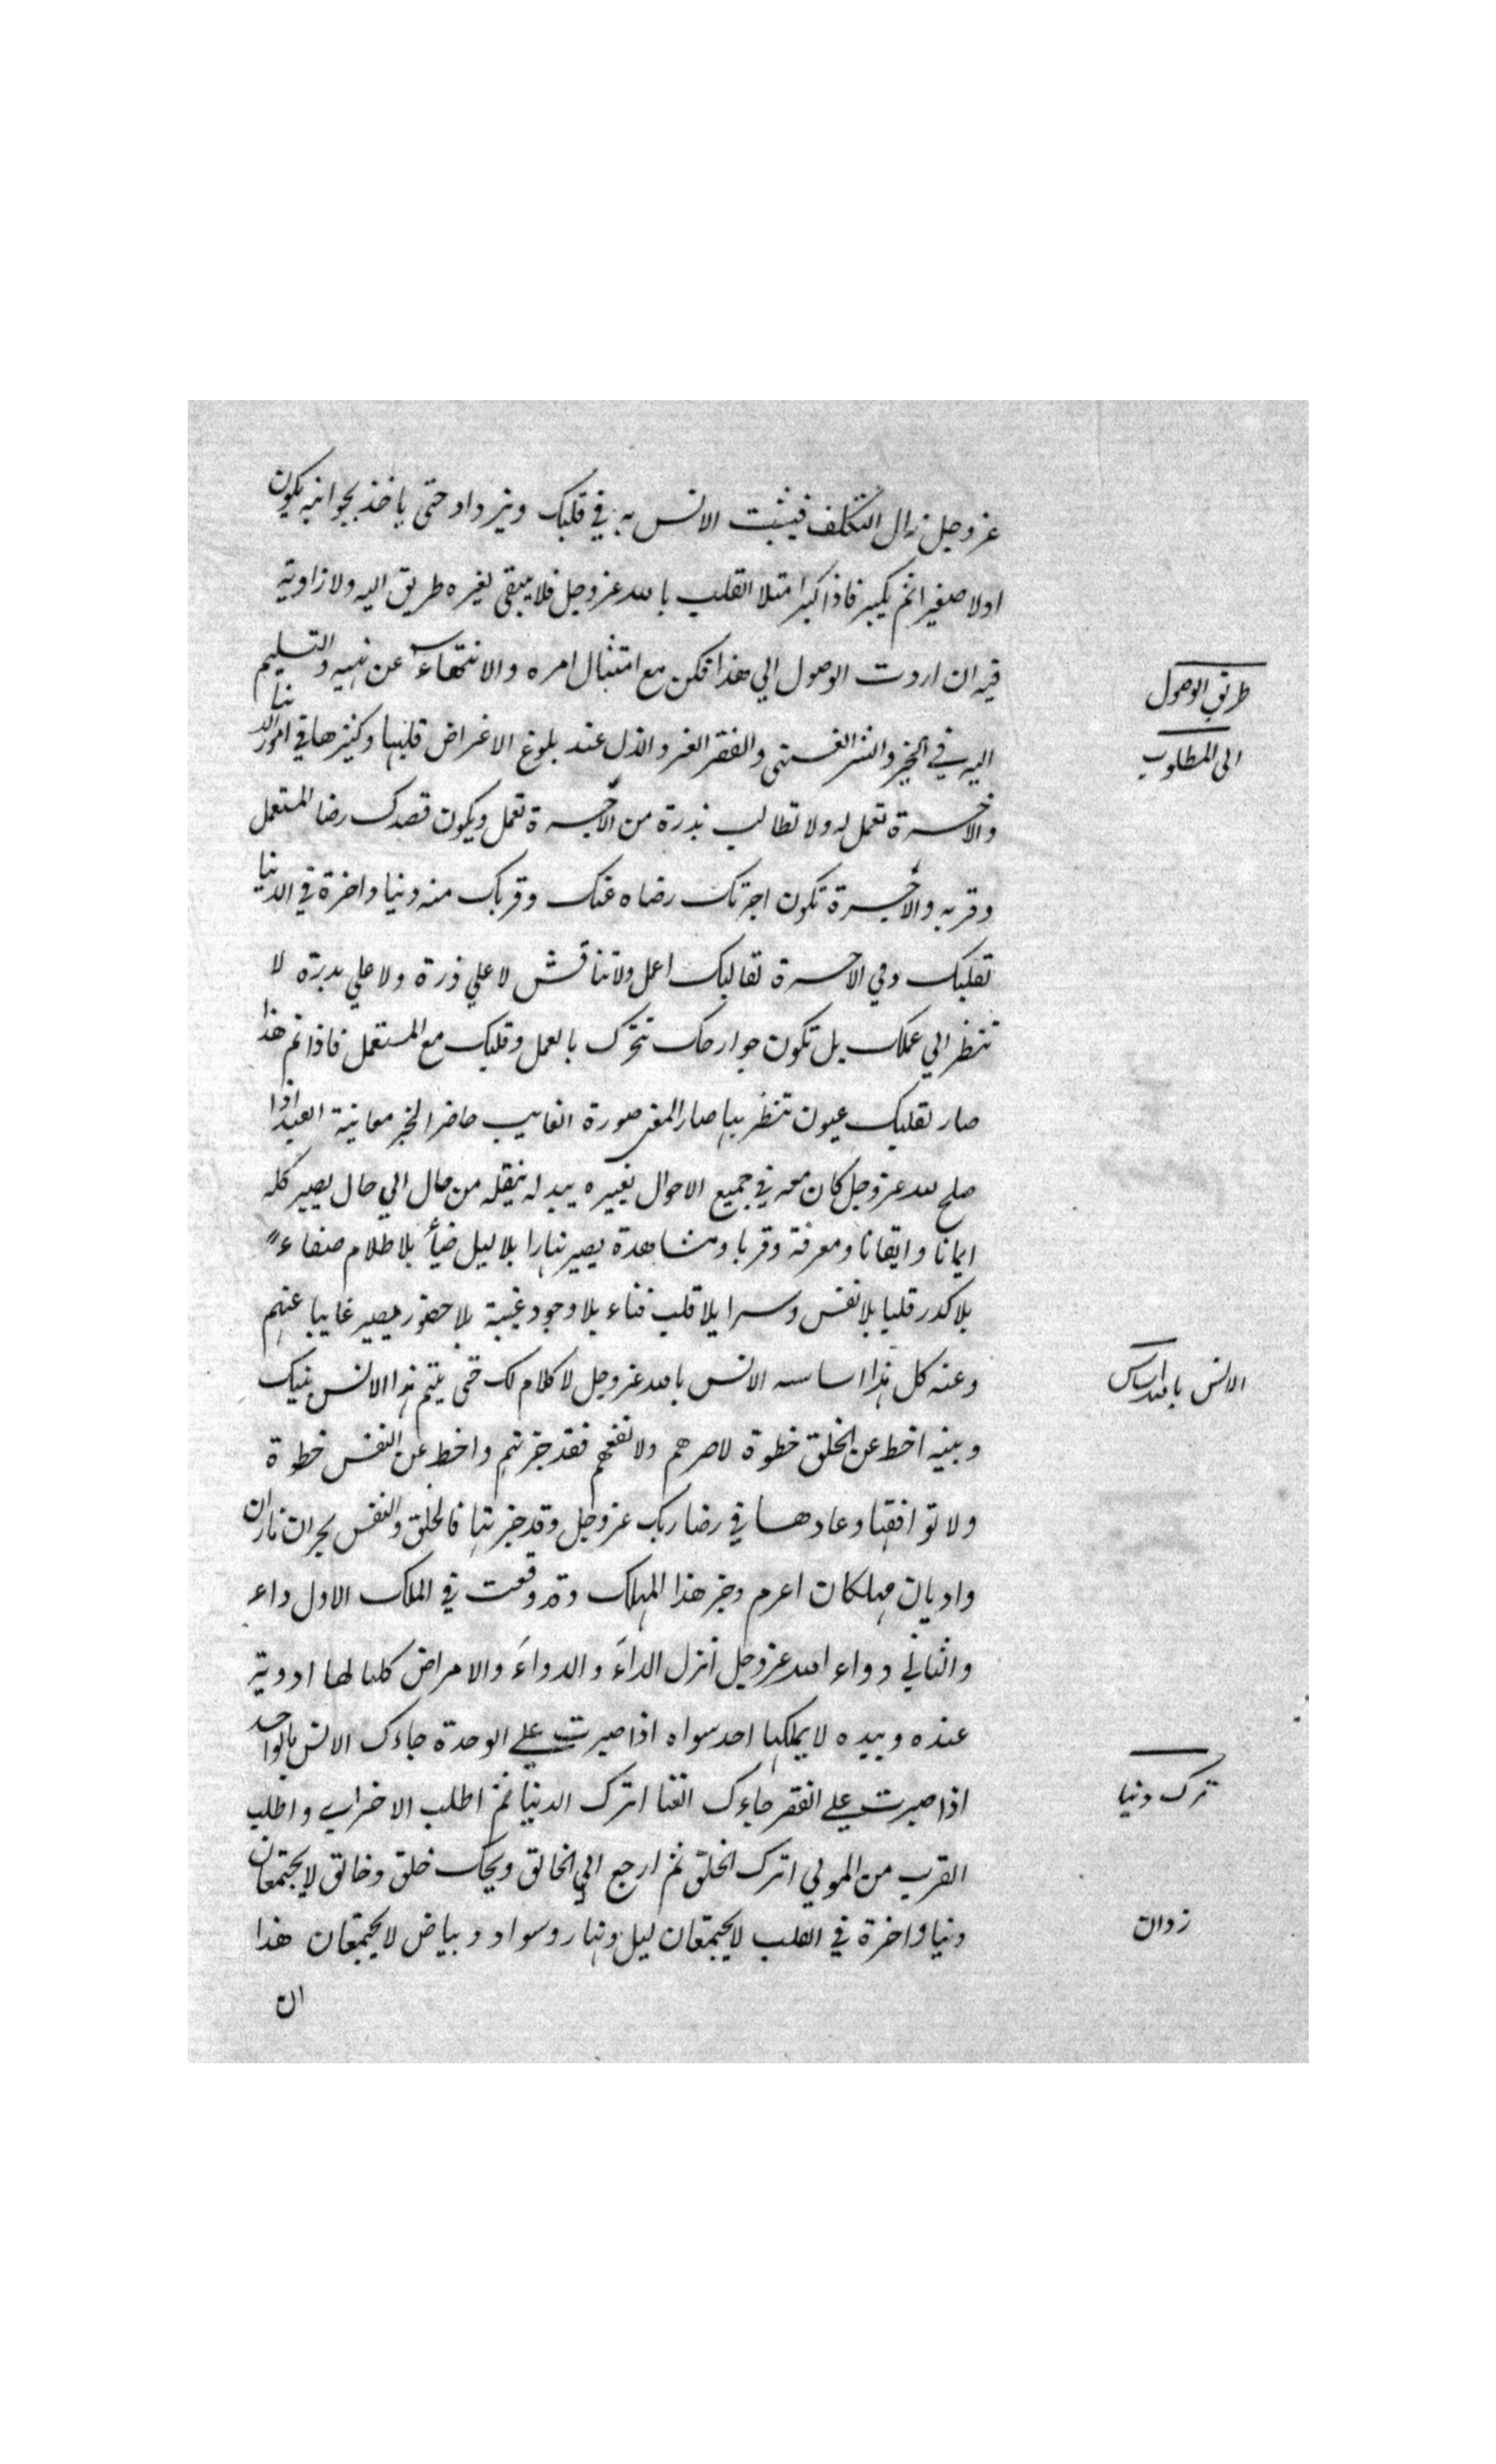 عز وجل زال التكلف فيثبت الانس به في قلبك ويزداد حتى ياخذ بجوانبه يكون
اولا صغيرا ثم يكبر فاذا كبر امتلا القلب بالله عز وجل فلا يبقى لغيره طريق اليه ولا زاوية
فيه ان اردت الوصول الي هذا فكن مع امتثال امره والانتهاء عن نهيه والتسليم
اليه في الخير والشر الغنى والفقر العز والذل عند بلوغ الاغراض قليلها وكثيرها في امور الدنيا
والاخرة تعمل له ولا تطالب بذرة من الاجرة تعمل ويكون قصدك رضا المستعمل
وقربه والاجرة تكون اجرتك رضاه عنك وقربك منه دنيا واخرة في الدنيا
لقلبك وفي الاخرة لقالبك اعمل ولا تناقش لا علي ذرة ولا علي بدرة لا
تنظر الي عملك بل تكون جوارحك تتحرك بالعمل وقلبك مع المستعمل فاذا تم هذا
صار لقلبك عيون تنظر بها صار المعنى صورة الغايب حاضرا الخبر معاينة العبد اذا
صلح لله عز وجل كان معه في جميع الاحوال يغيره يبدله ينقله من حال الي حال يصير كله
ايمانا وايقانا ومعرفة وقربا ومشاهدة يصير نهارا بلا ليل ضياء بلا ظلام صفاء
بلا كدر قلبا بلا نفس وسرا بلا قلب فناء بلا وجود غيبة بلا حضور يصير غايبا عنهم
وعنه كل هذا اساسه الانس بالله عز وجل لا كلام لك حتى يتم هذا الانس بينك
وبينه اخط عن الخلق خطوة لا ضرهم ولا نفعهم فقد جزتهم واخط عن النفس خطوة
ولا توافقها وعادها في رضا ربك عز وجل وقد جزتها فالخلق والنفس بحران ناران
واديان مهلكان اعزم وجز هذا المهلك وقد وقعت في الملك الاول داء
والثاني دواء الله عز وجل انزل الداء والدواء والامراض كلها لها ادوية
عنده وبيده لا يملكها احد سواه اذا صبرت علي الوحدة جاءك الانس بالواحد
اذا صبرت علي الفقر جاءك الغنا اترك الدنيا ثم اطلب الاخراي واطلب
القرب من المولي اترك الخلق ثم ارجع الي الخالق ويحك خلق وخالق لا يجتمعان
دنيا واخرة في القلب لا يجتمعان ليل ونهار وسواد وبياض لا يجتمعان هذا
ان
طريق الوصول
الى المطلوب
الانس بالله اساس
ترك دنيا